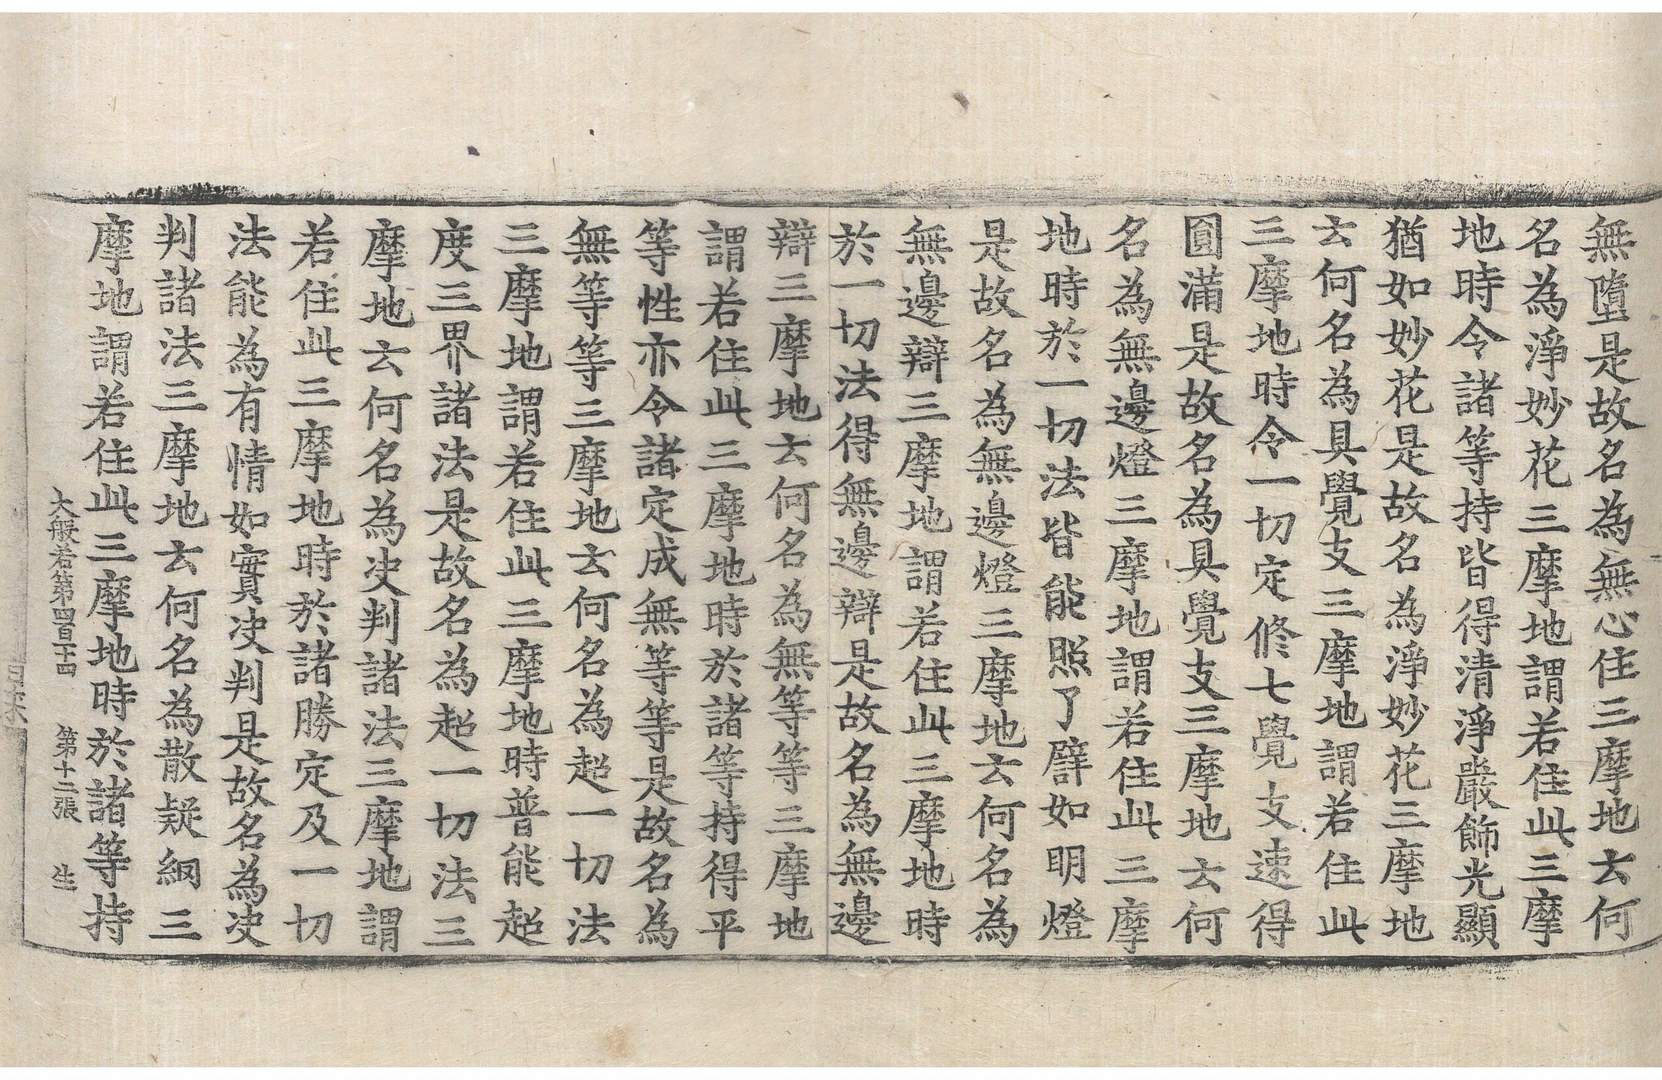 無墮是故名為無心住三摩地云何
名為淨妙花三摩地謂若住此三摩
地時令諸等持皆得清淨嚴飾光顯
猶如妙花是故名為淨妙花三摩地
云何名為具覺支三摩地謂若住此
三摩地時令一切定修七覺支速得
圓滿是故名為具覺支三摩地云何
名為無邊燈三摩地謂若住此三摩
地時於一切法皆能照了譬如明燈
是故名為無邊燈三摩地云何名為
無邊辯三摩地謂若住此三摩地時
於一切法得無邊辯是故名為無邊
辯三摩地云何名為無等等三摩地
謂若住此三摩地時於諸等持得平
等性亦令諸定成無等等是故名為
無等等三摩地云何名為超一切法
三摩地謂若住此三摩地時普能超
度三界諸法是故名為超一切法三
摩地云何名為决判諸法三摩地謂
若住此三摩地時於諸勝定及一切
法能為有情如實决判是故名為决
判諸法三摩地云何名為散疑網三
摩地謂若住此三摩地時於諸等持
大般若第四百十四 第十二張 生